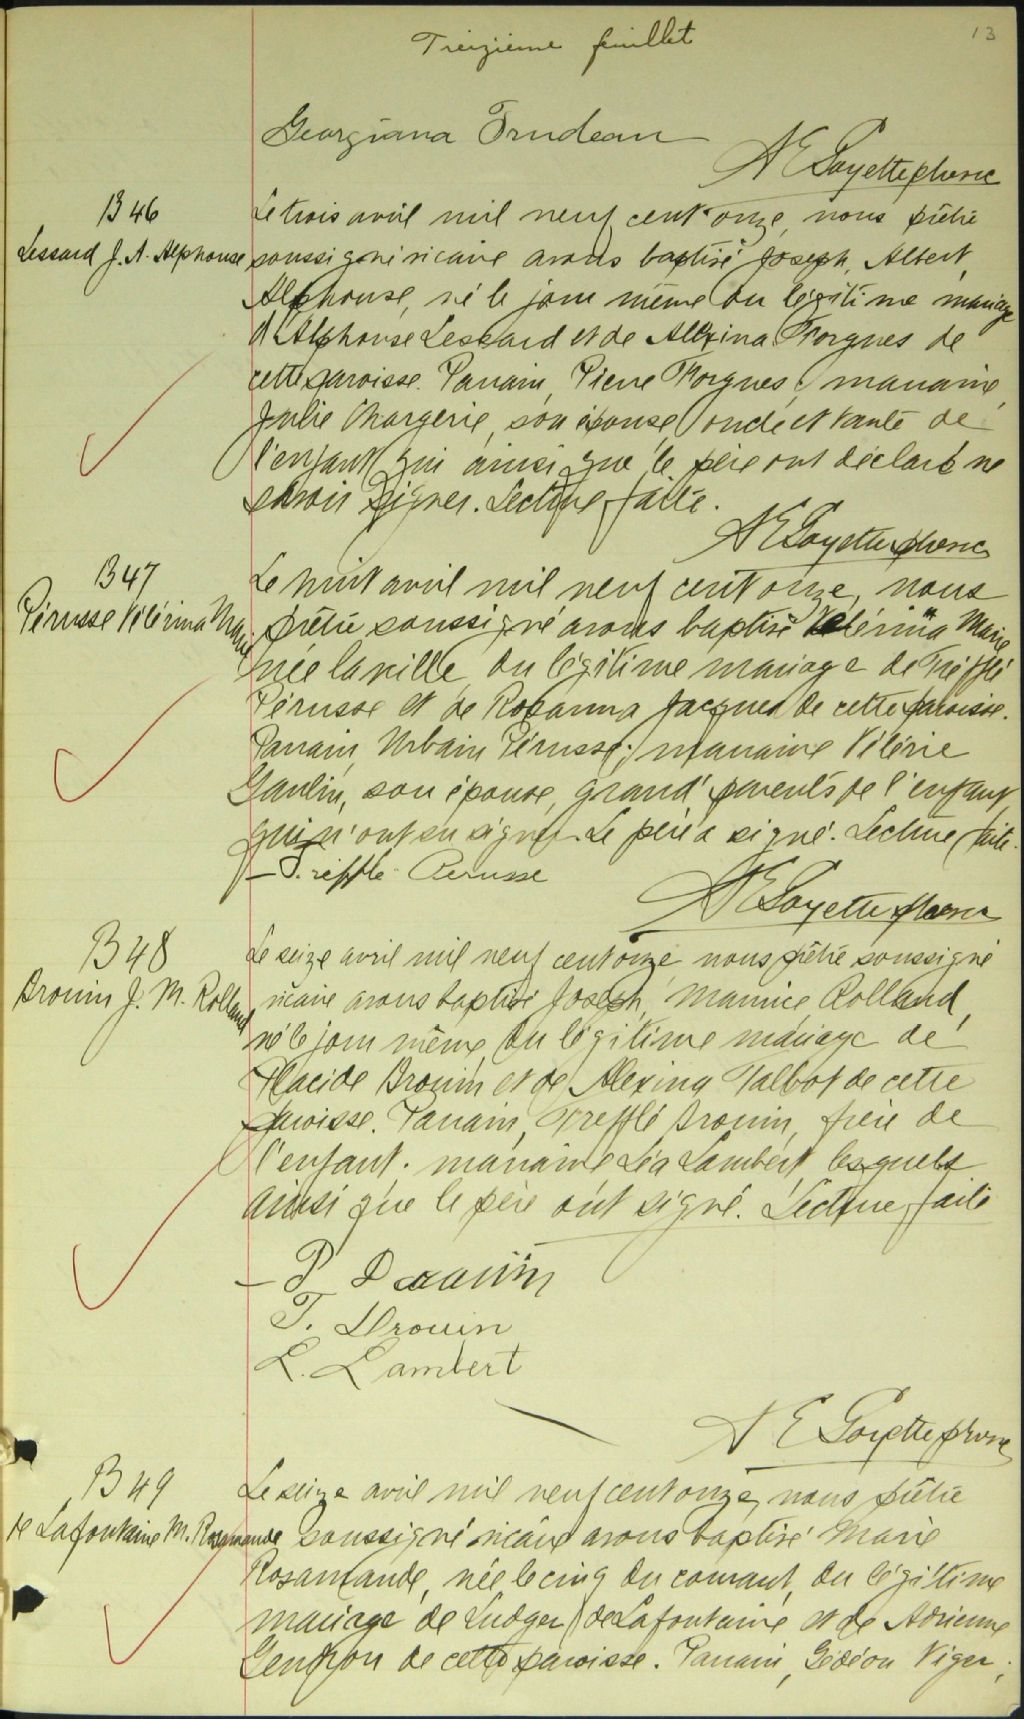 13
Treizième feuillet
Georgiana Trudeau
N E Goyette ptre vic
B 46
Lessard J. A. Alphonse
Le trois avril mil neuf cent onze, nous prêtre
soussigné vicaire avons baptisé Joseph, Albert,
Alphonse, né le jour même du légitime mariage
d'Alphonse Lessard et de Alexina Forgues de
cette paroisse. Parrain, Pierre Forgues; marraine,
Julie Thargerie, son épouse, oncle et tante de
l'enfant qui ainsi que le père ont déclaré ne
savoir signer. Lecture faite.
N E Goyette ptre vic
B 47
Pérusse Vélérina Marie
Le huit avril mil neuf cent onze, nous
prêtre soussigné avons baptisé Vélérina Marie
née la veille, du légitime mariage de Trefflé
Pérusse et de Rosanna Jacques de cette paroisse.
Parrain, Urbain Pérusse; marraine Vélérie
Gaulin, son épouse, grand'parents de l'enfant,
qui n'ont su signer. Le père a signé. Lecture faite.
— T. refflé Perusse
N E Goyette ptre vic
B 48
Drouin J. M. Rolland
Le seize avril mil neuf cent onze, nous prêtre soussigné
vicaire avons baptisé Joseph, Maurice, Rolland,
né le jour même, du légitime mariage de
Placide Drouin et de Alexina Talbot de cette
paroisse. Parrain, Trefflé Drouin, frère de
l'enfant. marraine Léa Lambert, lesquels
ainsi que le père ont signé. Lecture faite
— P Drouin
T. Drouin
L. Lambert
N E Goyette ptre vic
B 49
de Lafontaine M. Rosamande
Le seize avril mil neuf cent onze, nous prêtre
soussigné vicaire avons baptisé Marie
Rosamande, née le cinq du courant, du légitime
mariage de Ludger de Lafontaine et de Adrienne
Gendron de cette paroisse. Parrain, Gédéon Viger;